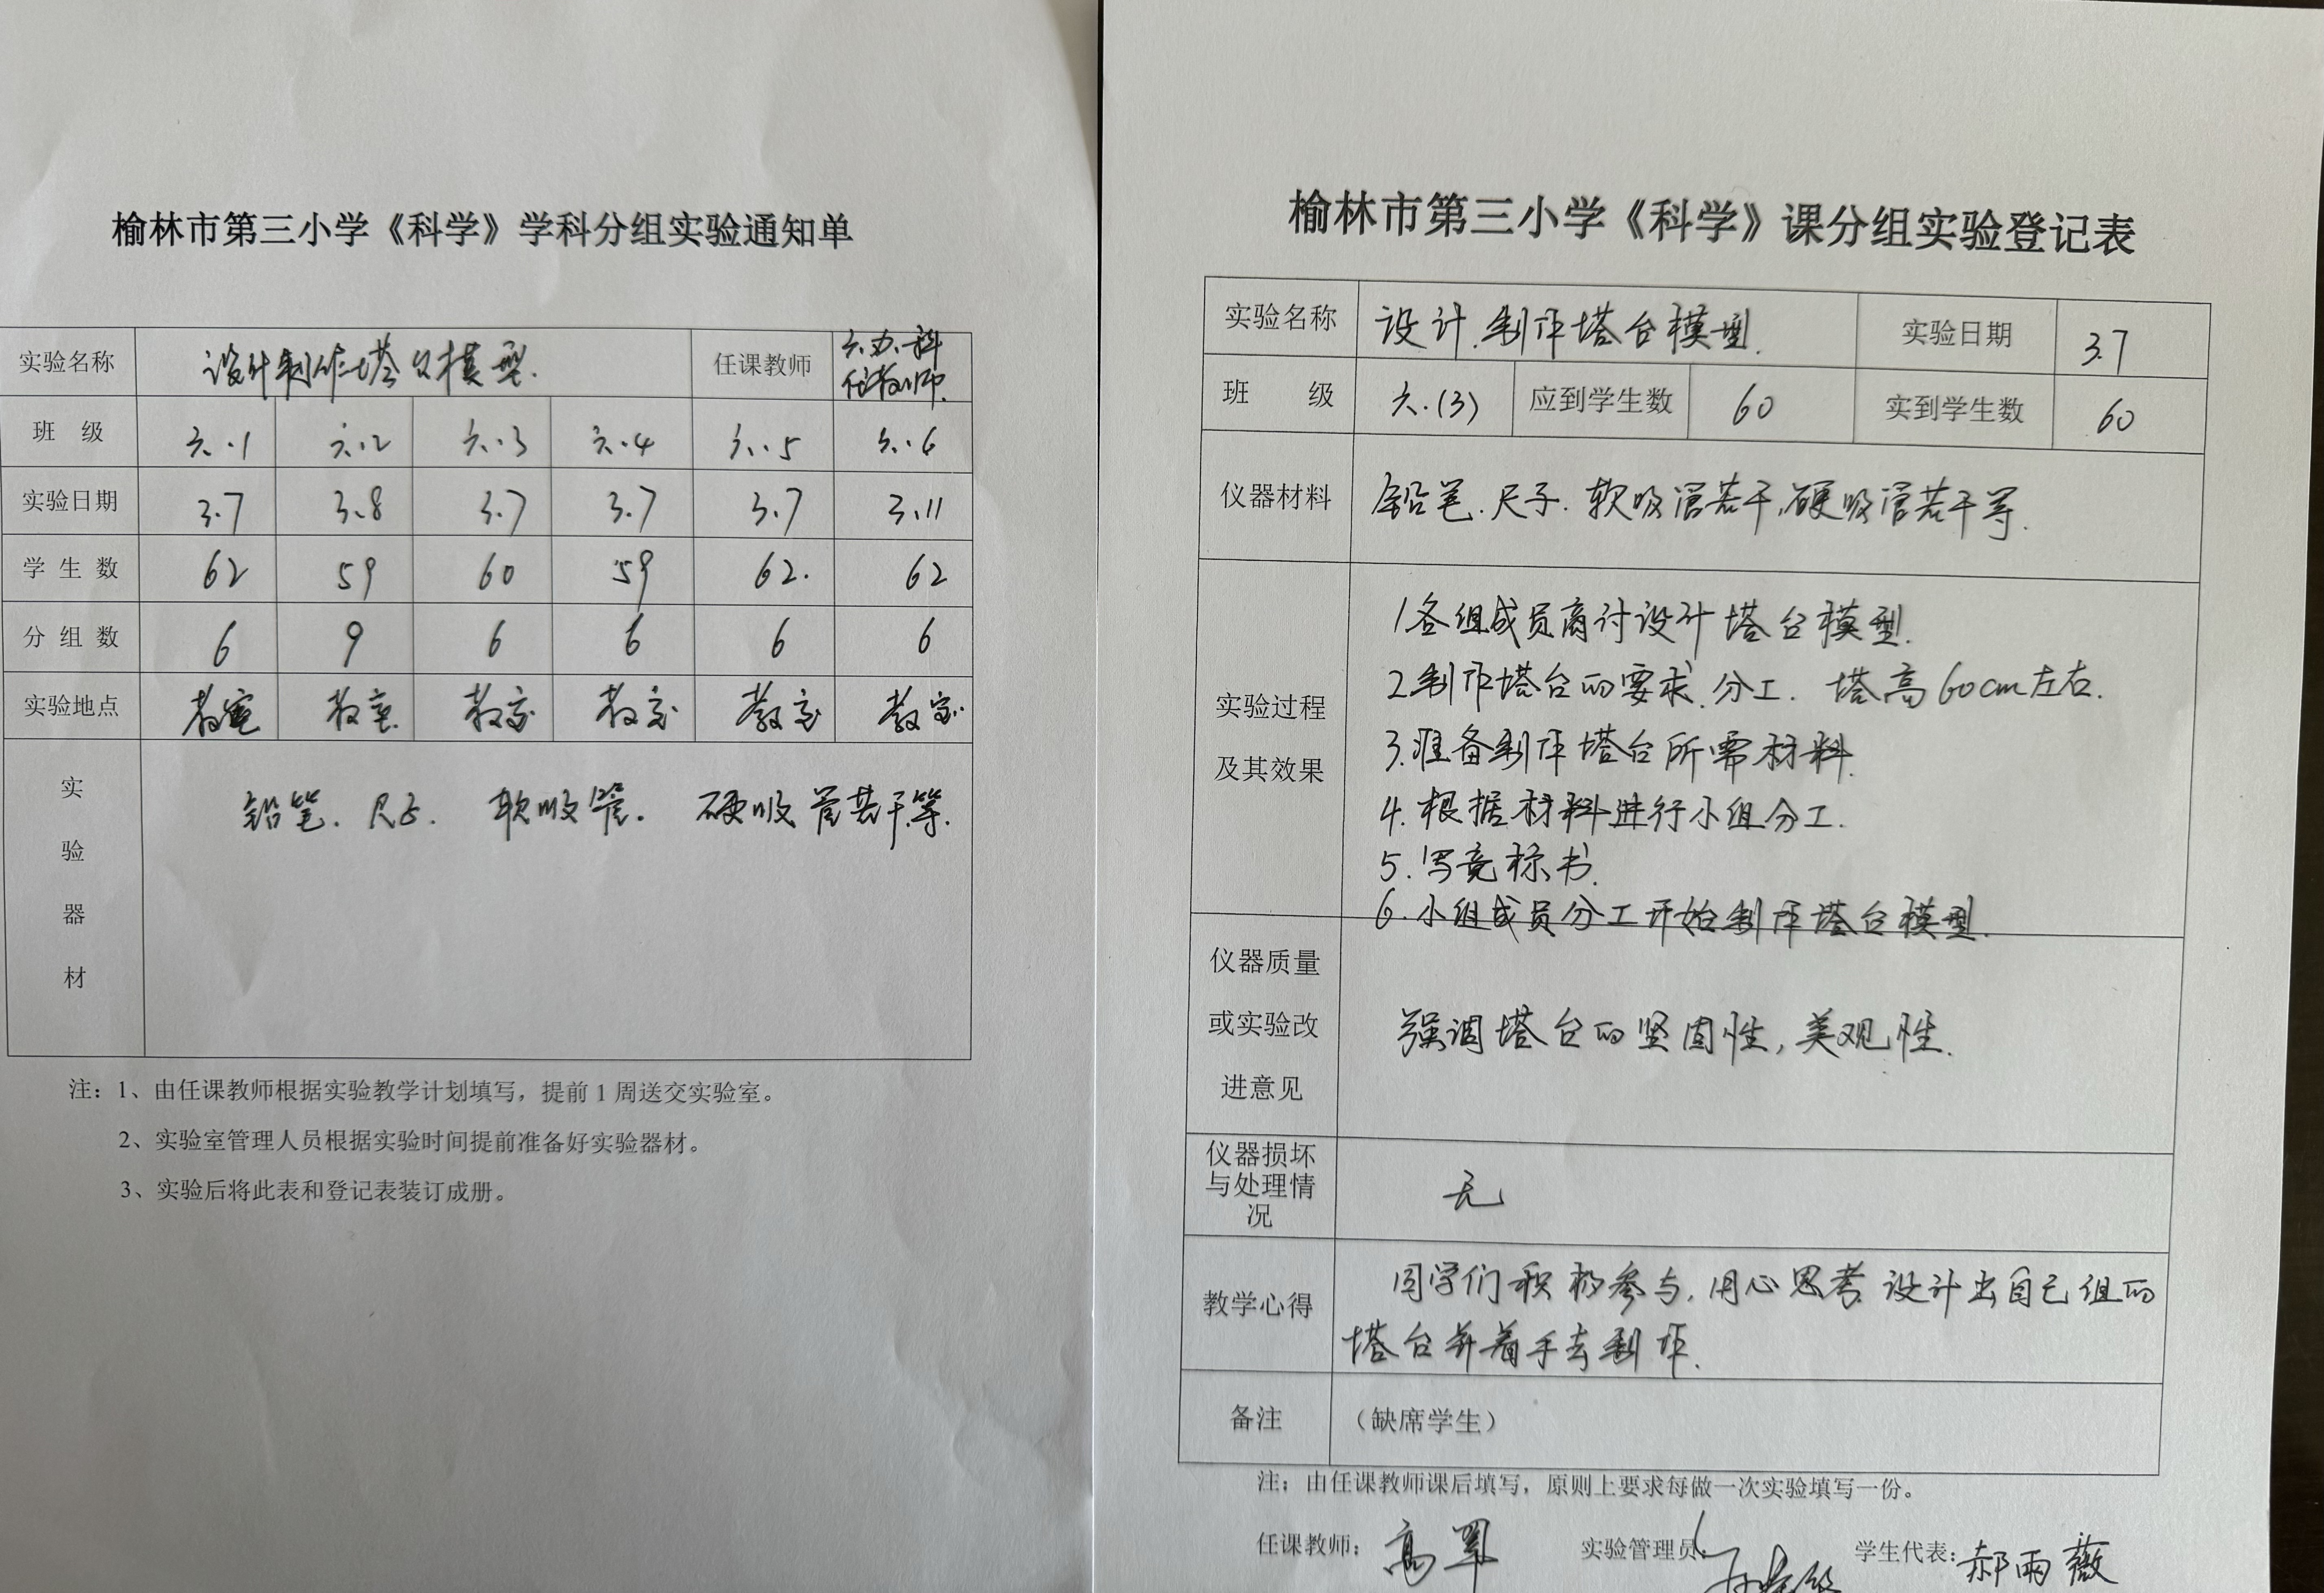 榆林市第三小学《科学》学科分组实验通知单
实验名称 设计制作塔台模型. 任课教师 六.办.科任教师.
班 级 六.1 六.2 六.3 六.4 六.5 六.6
实验日期 3.7 3.8 3.7 3.7 3.7 3.11
学 生 数 62 59 60 59 62. 62
分 组 数 6 9 6 6 6 6
实验地点 教室 教室 教室 教室 教室 教室
实验器材 铅笔. 尺子. 软吸管. 硬吸管若干等.
注：1、由任课教师根据实验教学计划填写，提前1周送交实验室。
2、实验室管理人员根据实验时间提前准备好实验器材。
3、实验后将此表和登记表装订成册。
榆林市第三小学《科学》课分组实验登记表
实验名称 设计.制作塔台模型. 实验日期 3.7
班 级 六.(3) 应到学生数 60 实到学生数 60
仪器材料 铅笔.尺子.软吸管若干,硬吸管若干等.
实验过程及其效果
1各组成员商讨设计塔台模型.
2.制作塔台的要求.分工. 塔高60cm左右.
3.准备制作塔台所需材料.
4.根据材料进行小组分工.
5.写竞标书.
6.小组成员分工开始制作塔台模型.
仪器质量
或实验改 强调塔台的坚固性,美观性.
进意见
仪器损坏
与处理情 无
况
教学心得 同学们积极参与,用心思考.设计出自己组的
塔台并着手去制作.
备注 （缺席学生）
注：由任课教师课后填写，原则上要求每做一次实验填写一份。
任课教师： 高 实验管理员： 学生代表：郝雨薇